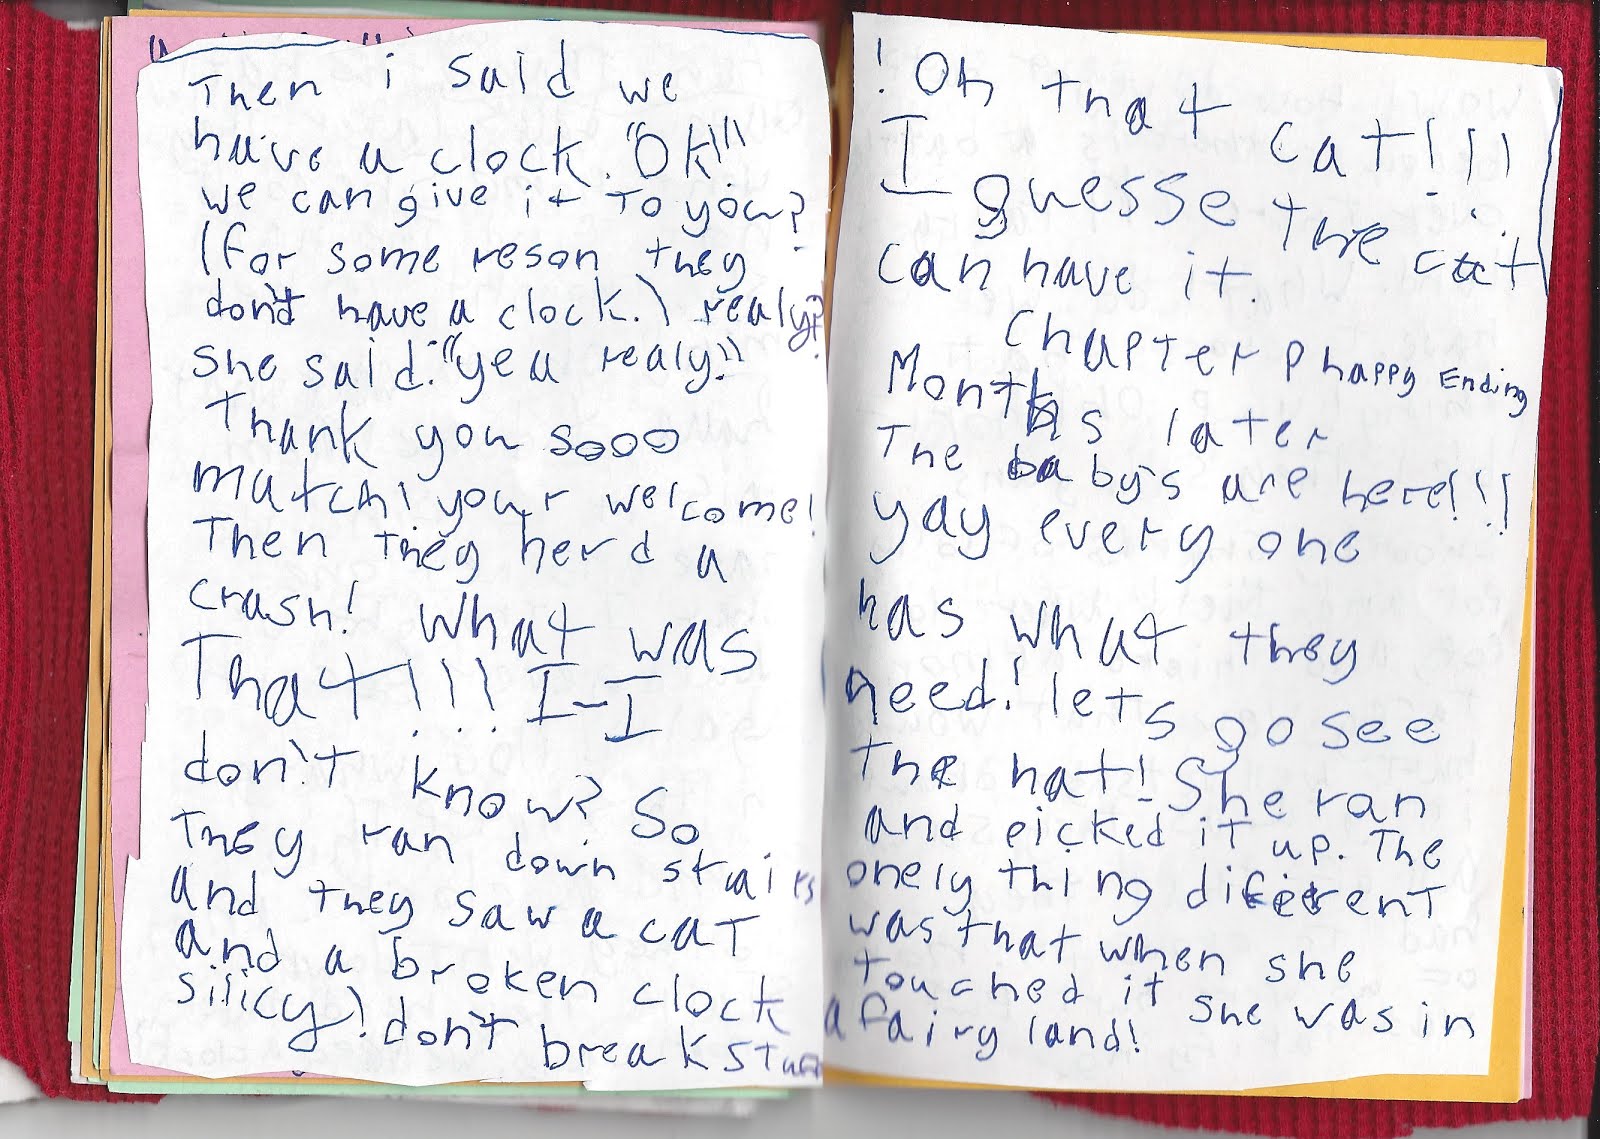 Then i said we
have a clock. "OK!"
we can give it to you?
(for some reson they
don't have a clock.) realy?
she said. "yea realy!"
Thank you sooo
match! your welcome!
Then they herd a
crash! What was
That!!! I-I
don't know? So
They ran down stairs
and they saw a cat
and a broken clock
silicy! don't break stuff
! Oh that cat!!!
I guesse the cat
can have it.
Chapter P happy Ending
Months later
The baby's are here!!!
yay every one
has what they
need! lets go see
the hat! She ran
and picked it up. The
onely thing different
was that when she
touched it she was in
a fairy land!